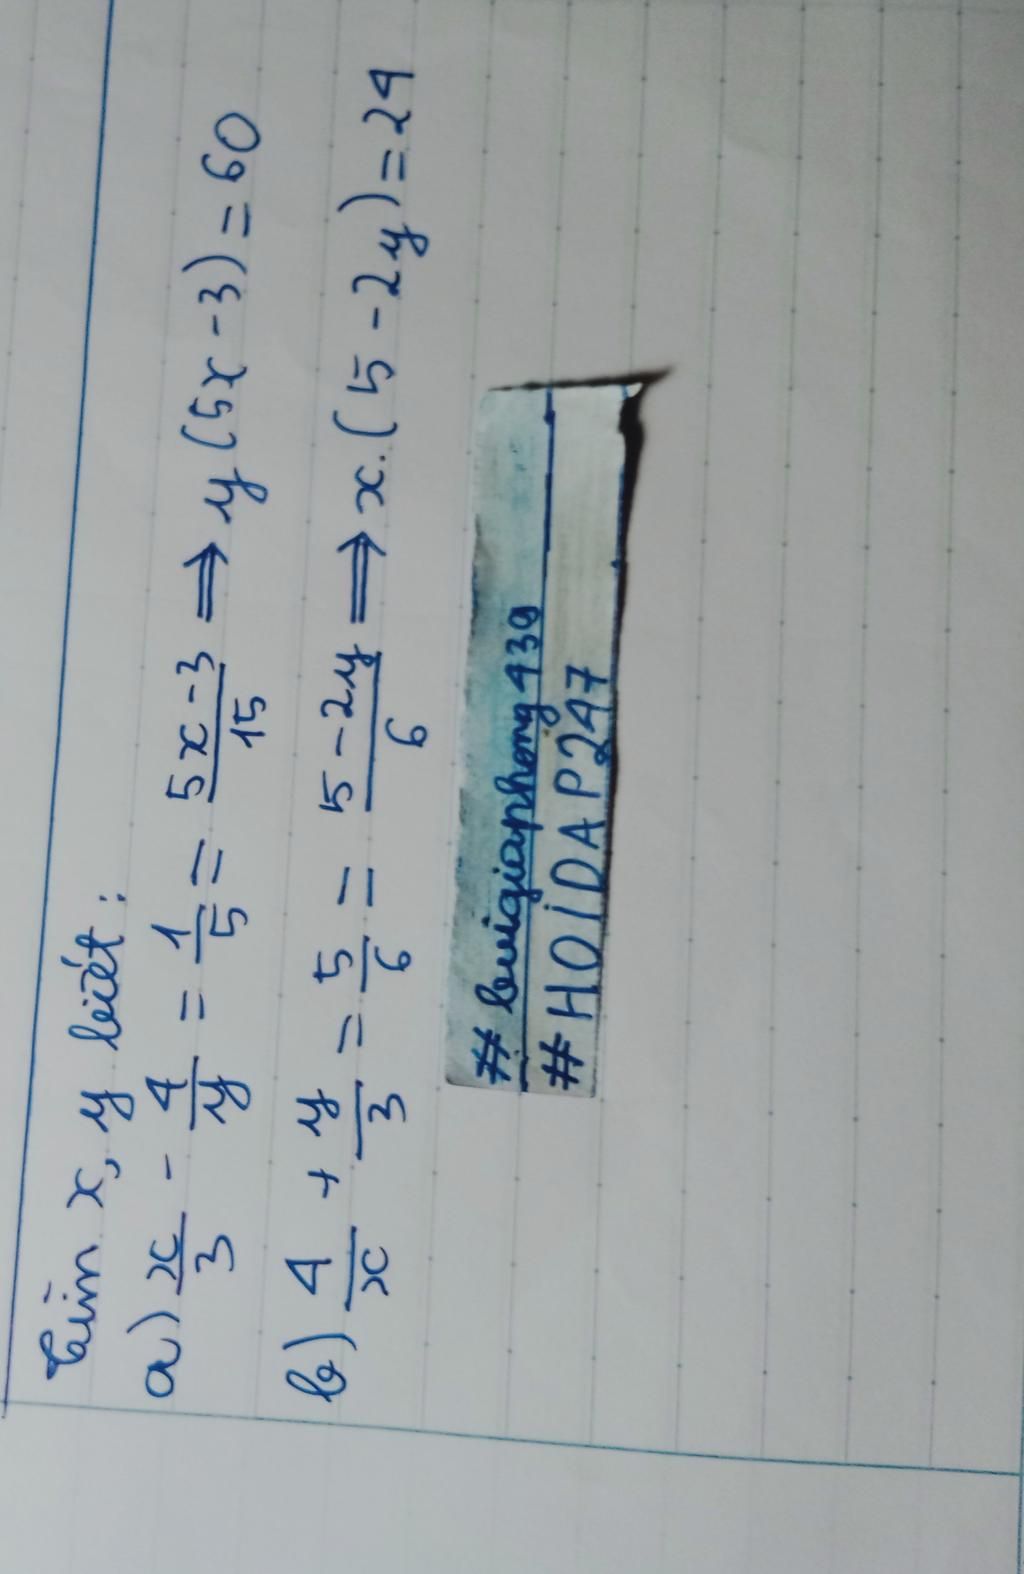 Tìm x, y biết:
a) x/3 - 4/y = 1/5 = 5x-3/15 ⟹ y(5x-3) = 60
b) 4/x + y/3 = 5/6 = 5-2y/6 ⟹ x.(5-2y) = 24
# buigiaphong439
# HOIDAP247